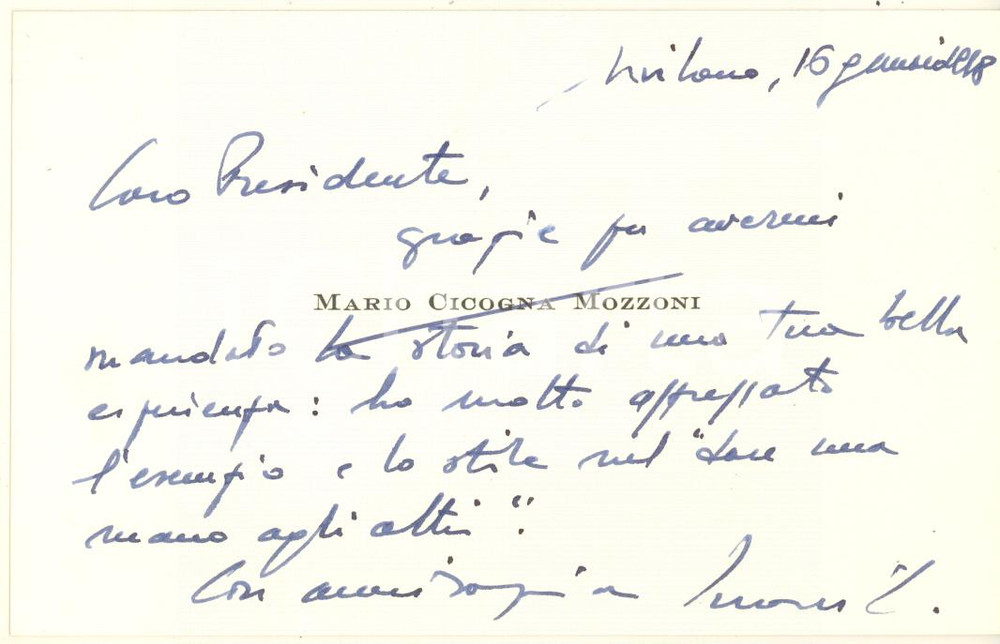 Milano, 16 gennaio 1998
Caro Presidente,
grazie per avermi
MARIO CICOGNA MOZZONI
mandato la storia di una tua bella
esperienza: ho molto apprezzato
l'esempio e lo stile nel "dare una
mano agli altri".
Con ammirazione